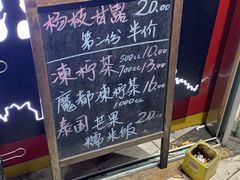 杨枝甘露 20.00
第二份 半价
凍柠茶 500cc 10.00
700cc 13.00
魔都凍柠茶 16.00
1000cc
泰国芒果 20.00
糯米饭